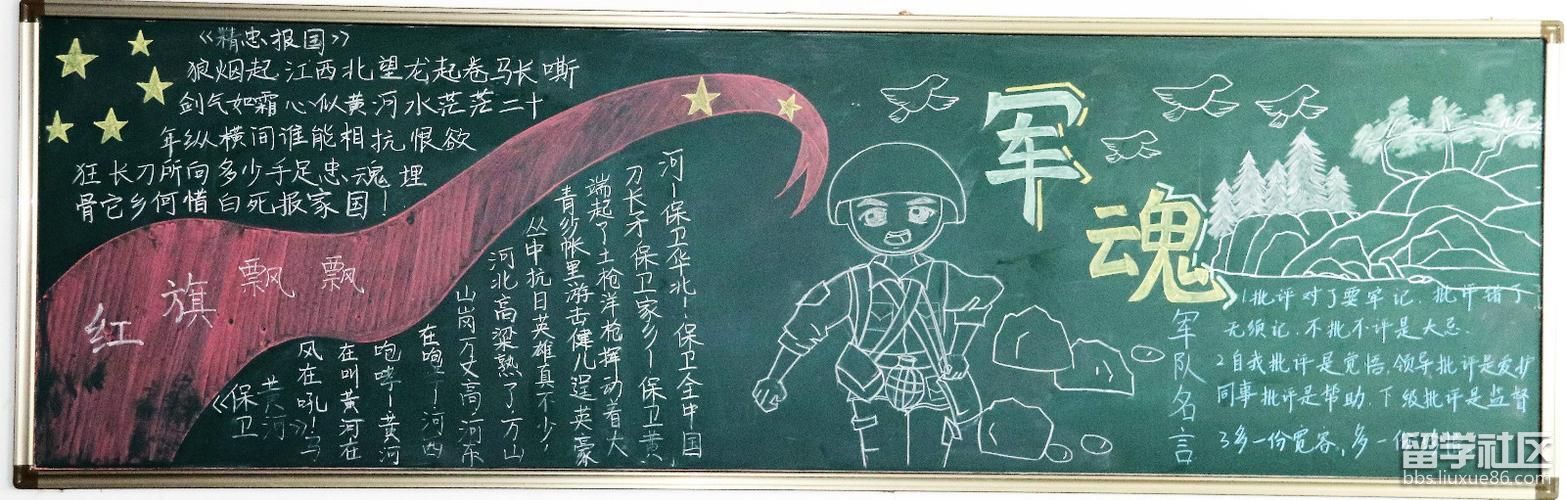 《精忠报国》
狼烟起江西北望龙起卷马长嘶
剑气如霜心似黄河水茫茫二十
年纵横间谁能相抗恨欲
狂长刀所向多少手足忠魂埋
骨它乡何惜白死报家国！
红旗飘飘
《保卫
黄河》
风在吼！马
在叫黄河在
咆哮！黄河
在咆哮！河西
山岗万丈高河东
河北高粱熟了万山
丛中抗日英雄真不少！
青纱帐里游击健儿逞英豪
端起了土枪洋枪挥动着大
刀长矛保卫家乡！保卫黄
河！保卫华北！保卫全中国
军魂
军队名言
1批评对了要牢记，批评错了
无须记，不批不评是大忌.
2自我批评是觉悟,领导批评是爱护
同事批评是帮助,下级批评是监督
3多一份宽容,多一
留学社区
bbs.liuxue86.com